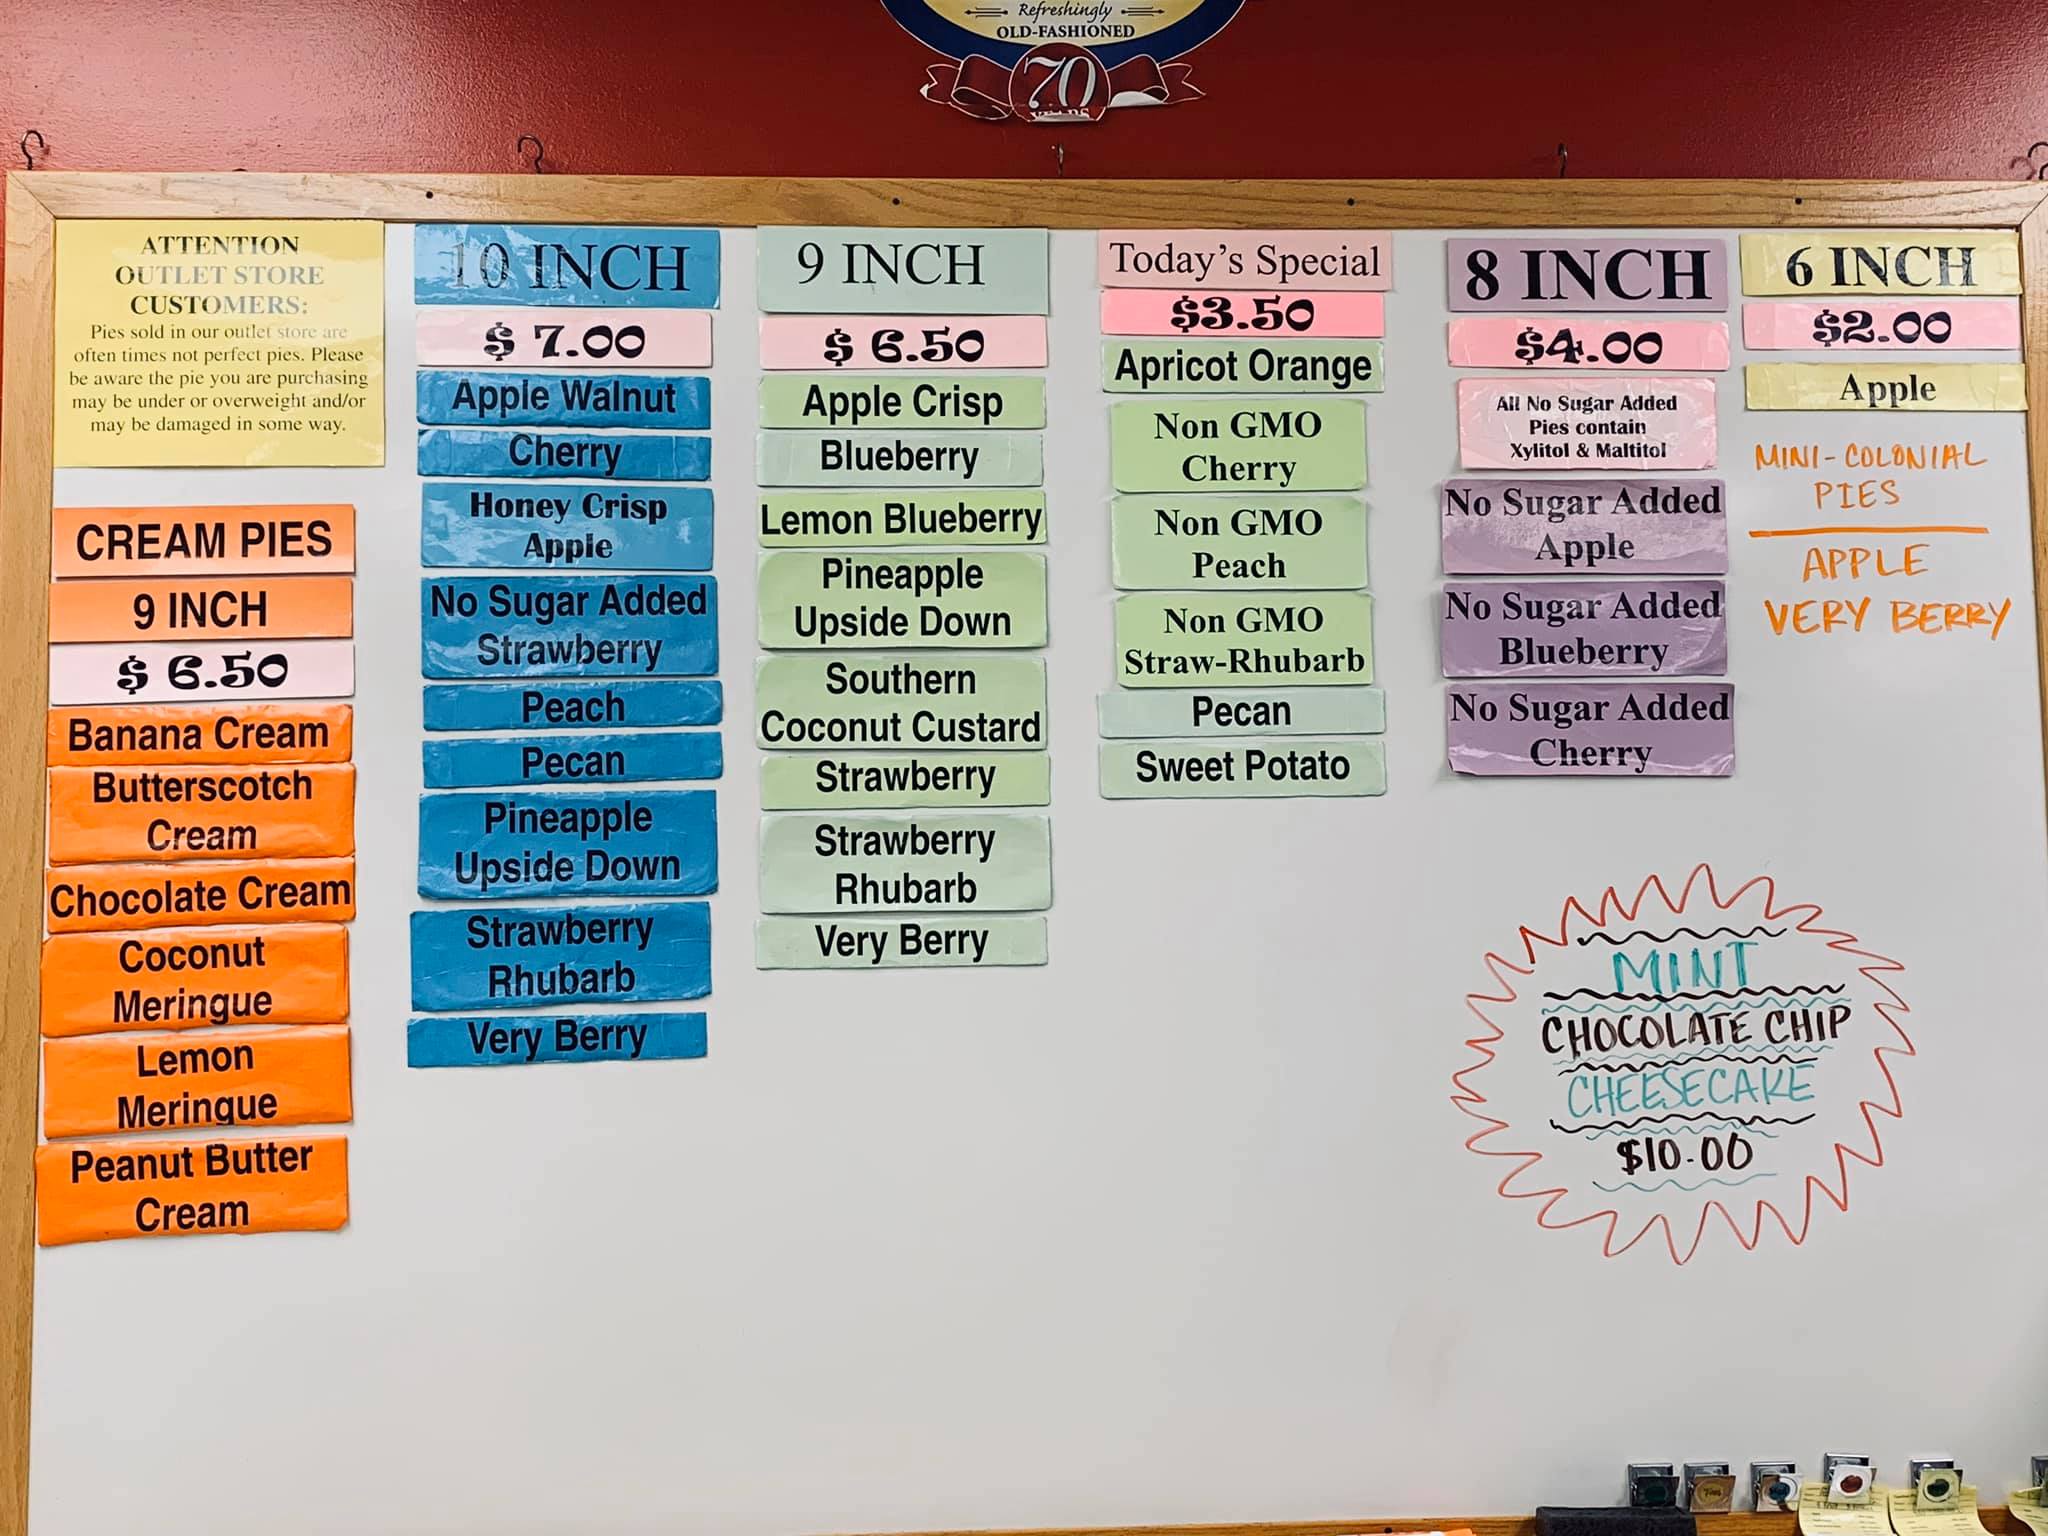 Refreshingly
OLD-FASHIONED
70
YEARS
ATTENTION
OUTLET STORE
CUSTOMERS:
Pies sold in our outlet store are
often times not perfect pies. Please
be aware the pie you are purchasing
may be under or overweight and/or
may be damaged in some way.
CREAM PIES
9 INCH
$ 6.50
Banana Cream
Butterscotch
Cream
Chocolate Cream
Coconut
Meringue
Lemon
Meringue
Peanut Butter
Cream
10 INCH
$ 7.00
Apple Walnut
Cherry
Honey Crisp
Apple
No Sugar Added
Strawberry
Peach
Pecan
Pineapple
Upside Down
Strawberry
Rhubarb
Very Berry
9 INCH
$ 6.50
Apple Crisp
Blueberry
Lemon Blueberry
Pineapple
Upside Down
Southern
Coconut Custard
Strawberry
Strawberry
Rhubarb
Very Berry
Today's Special
$3.50
Apricot Orange
Non GMO
Cherry
Non GMO
Peach
Non GMO
Straw-Rhubarb
Pecan
Sweet Potato
8 INCH
$4.00
All No Sugar Added
Pies contain
Xylitol & Maltitol
No Sugar Added
Apple
No Sugar Added
Blueberry
No Sugar Added
Cherry
6 INCH
$2.00
Apple
MINI-COLONIAL
PIES
APPLE
VERY BERRY
MINT
CHOCOLATE CHIP
CHEESECAKE
$10.00